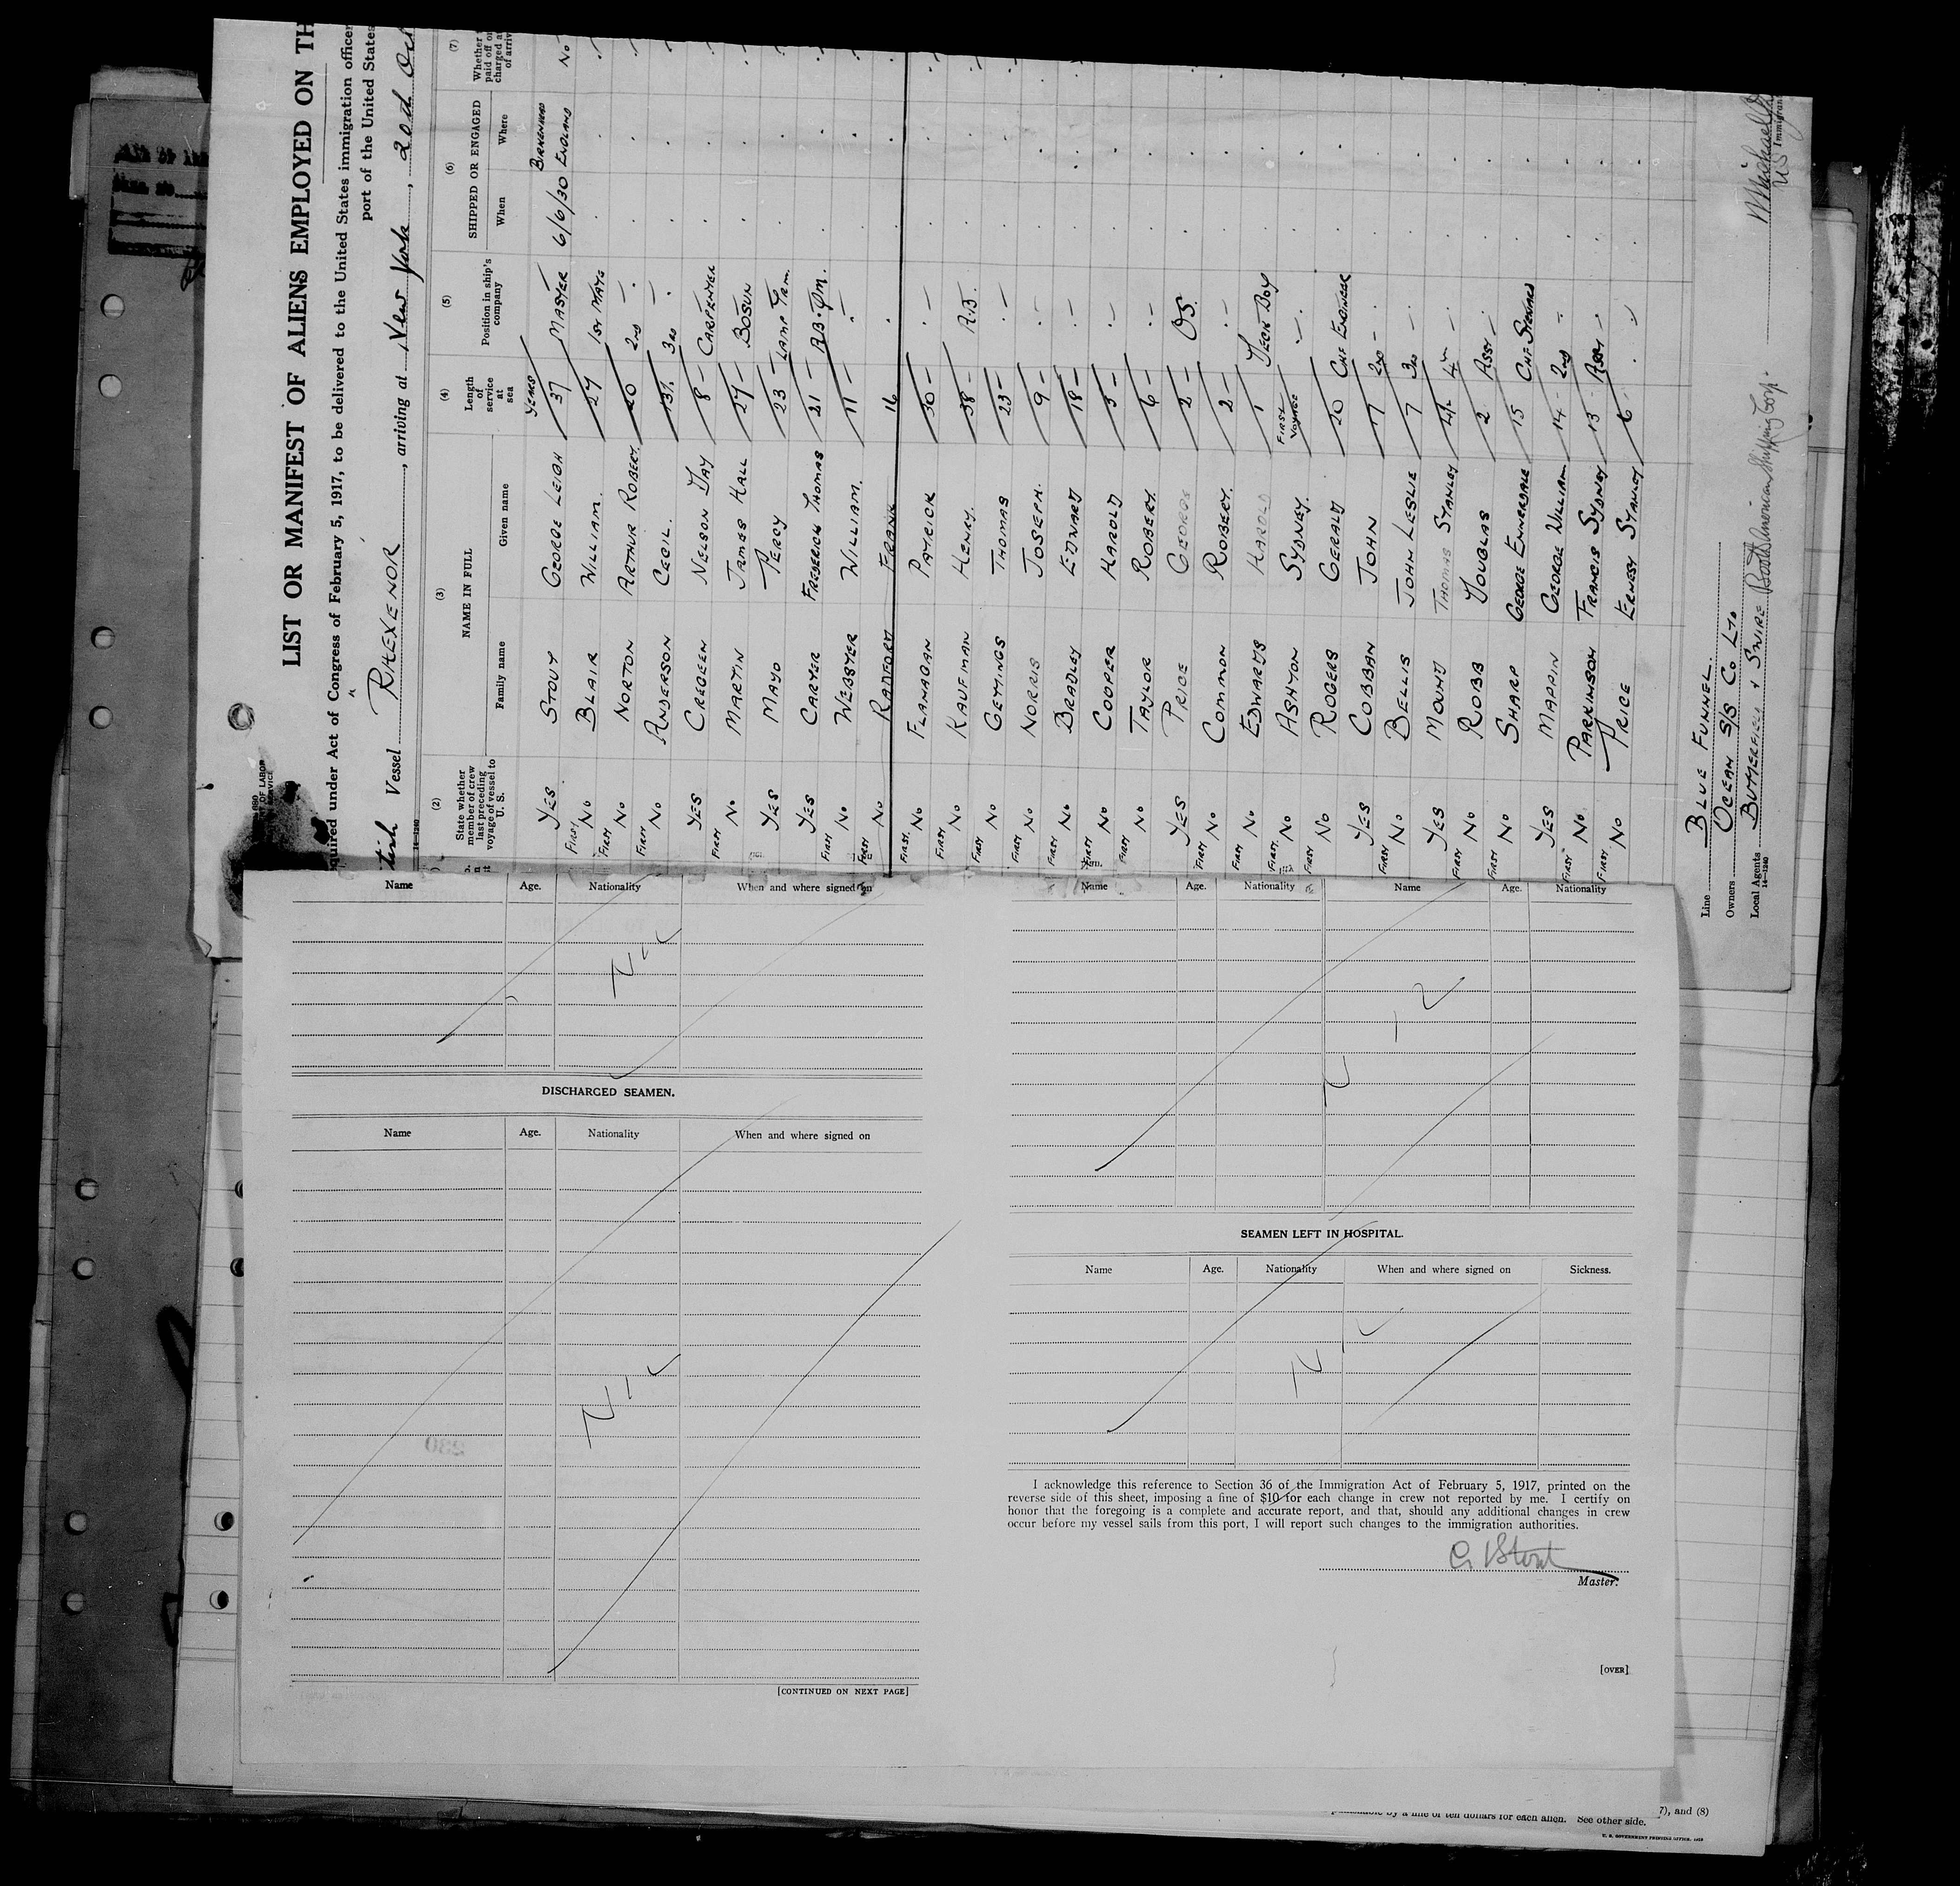 LIST OR MANIFEST OF ALIENS EMPLOYED ON TH
quired under Act of Congress of February 5, 1917, to be delivered to the United States immigration officer
port of the United States
Vessel RHEXENOR, arriving at New York, 20th Oct
(2) (3) (4) (5) (6) (7)
State whether member of crew last preceding voyage of vessel to U. S.
NAME IN FULL
Family name Given name
Length of service at sea
Position in ship's company
SHIPPED OR ENGAGED
When Where
YEARS
YES STOUT GEORGE LEIGH 37 MASTER 6/6/30 BIRKENHEAD ENGLAND No
FIRST No BLAIR WILLIAM. 27 1ST MATE
FIRST No NORTON ARTHUR ROBERT. 20 2ND
FIRST No ANDERSON CECIL. 13½ 3RD
YES CREGEEN NELSON DAY 8 CARPENTER
FIRST No MARTIN JAMES HALL 27 BOSUN
YES MAYO PERCY 23 LAMP TRM.
YES CARTER FREDERICK THOMAS 21 A.B. QM.
FIRST No WEBSTER WILLIAM. 11
FIRST No RADFORD FRANK 16
FIRST No FLANAGAN PATRICK 30
FIRST No KAUFMAN HENRY. 38 A.B.
FIRST No GETTINGS THOMAS 23
FIRST NORRIS JOSEPH. 9
FIRST No BRADLEY EDWARD 18
FIRST No COOPER HAROLD 3
FIRST No TAYLOR ROBERT. 6
YES PRICE GEORGE 2 OS.
FIRST No COMMON ROBERT. 2
FIRST No EDWARDS HAROLD 1 DECK BOY
FIRST No ASHTON SYDNEY. FIRST VOYAGE
FIRST No ROGERS GERALD 20 CHF ENGINEER
YES COBBAN JOHN 17 2ND
FIRST No BELLIS JOHN LESLIE 7 3RD
YES MOUND THOMAS STANLEY 4½ 4TH
FIRST No ROBB DOUGLAS 2 ASST
FIRST No SHARP GEORGE ENNERDALE 15 CHF STEWARD
YES MAPPIN GEORGE WILLIAM 14 2ND
FIRST No PARKINSON FRANCIS SYDNEY 13 ASST
FIRST No PRICE ERNEST STANLEY 6
Line BLUE FUNNEL.
Owners OCEAN S/S Co LTD
Local Agents BUTTERFIELD & SWIRE Booth American Shipping Corp.
14—1240
Name Age. Nationality When and where signed on
NIL
DISCHARGED SEAMEN.
Name Age. Nationality When and where signed on
NIL
[CONTINUED ON NEXT PAGE]
Name Age. Nationality Name Age. Nationality
NIL
SEAMEN LEFT IN HOSPITAL.
Name Age. Nationality When and where signed on Sickness.
NIL
I acknowledge this reference to Section 36 of the Immigration Act of February 5, 1917, printed on the
reverse side of this sheet, imposing a fine of $10 for each change in crew not reported by me. I certify on
honor that the foregoing is a complete and accurate report, and that, should any additional changes in crew
occur before my vessel sails from this port, I will report such changes to the immigration authorities.
G L Stout
Master.
[OVER]
7), and (8)
by a fine of ten dollars for each alien. See other side.
U. S. GOVERNMENT PRINTING OFFICE